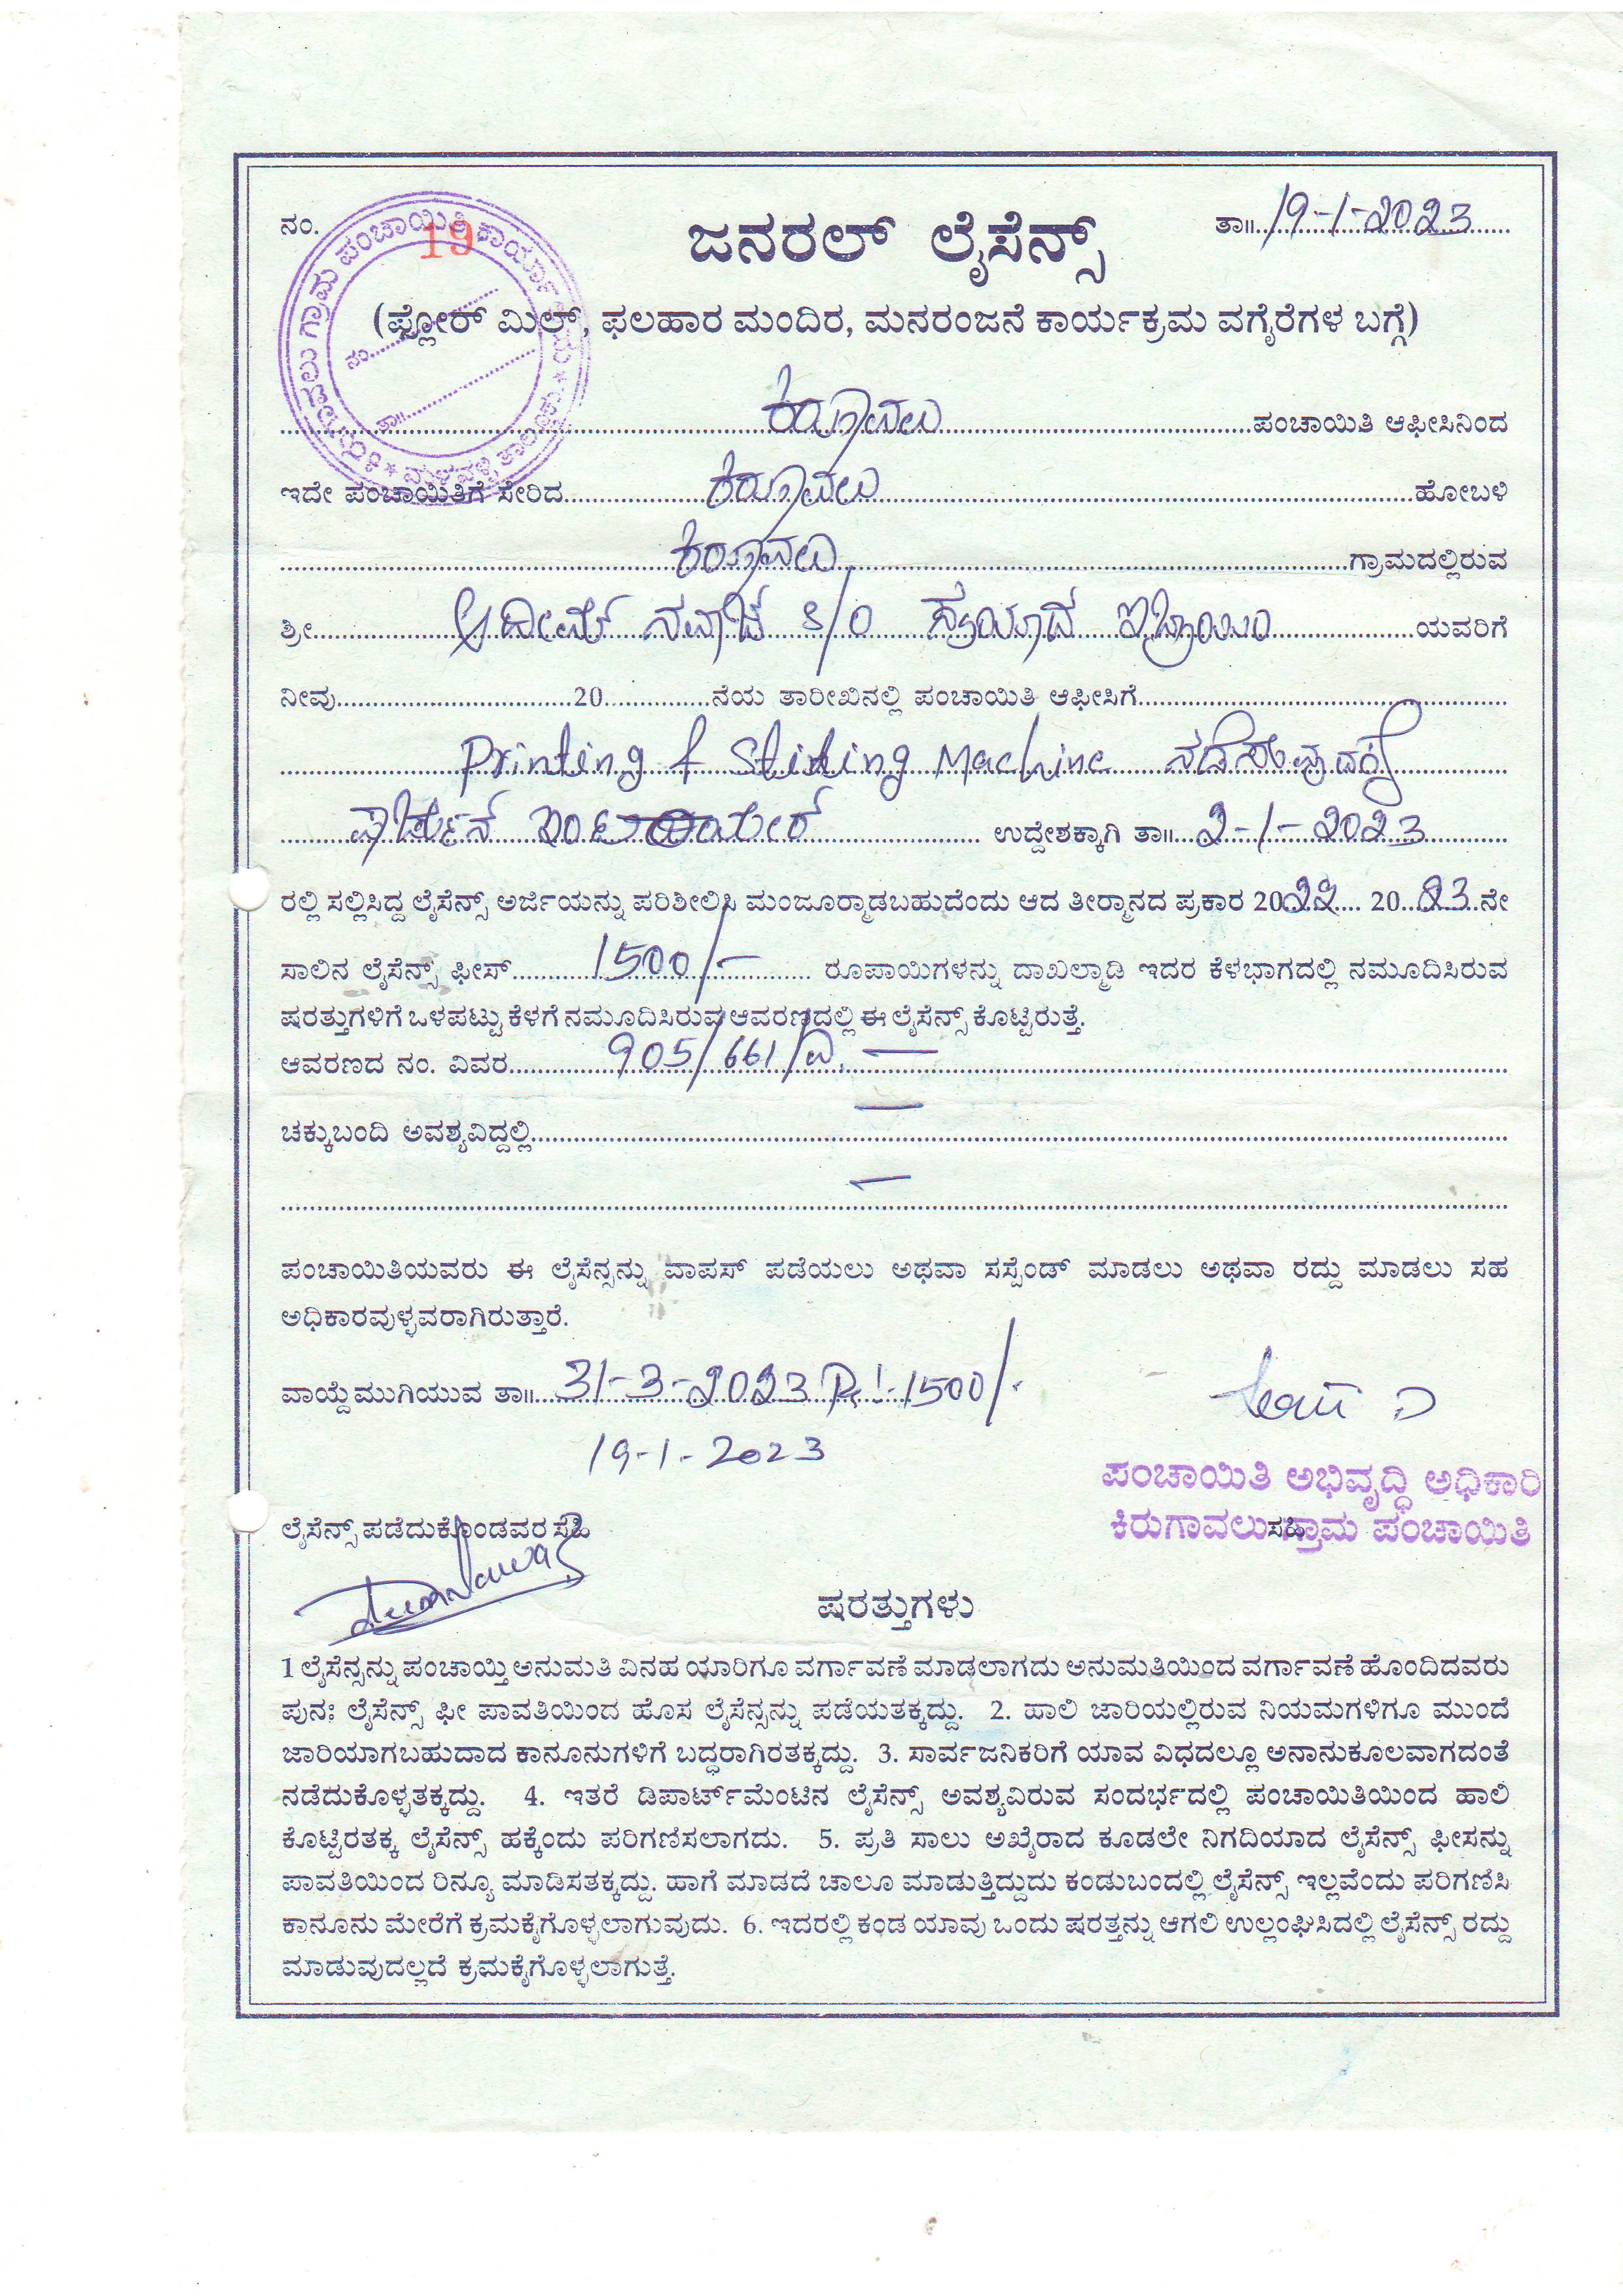 ನಂ. 19
ತಾ॥ 19-1-2023
ಜನರಲ್ ಲೈಸೆನ್ಸ್
(ಫ್ಲೋರ್ ಮಿಲ್, ಫಲಹಾರ ಮಂದಿರ, ಮನರಂಜನೆ ಕಾರ್ಯಕ್ರಮ ವಗೈರೆಗಳ ಬಗ್ಗೆ)
ನಂ.
ತಾ॥
ಪಂಚಾಯಿತಿ ಆಫೀಸಿನಿಂದ
ಇದೇ ಪಂಚಾಯಿತಿಗೆ ಸೇರಿದ ಹೋಬಳಿ
ಗ್ರಾಮದಲ್ಲಿರುವ
ಶ್ರೀ ನವಾಜ್ S/O ಯವರಿಗೆ
ನೀವು 20 ನೆಯ ತಾರೀಖಿನಲ್ಲಿ ಪಂಚಾಯಿತಿ ಆಫೀಸಿಗೆ
Printing & Machine
ಉದ್ದೇಶಕ್ಕಾಗಿ ತಾ॥ 2-1-2023
ರಲ್ಲಿ ಸಲ್ಲಿಸಿದ್ದ ಲೈಸೆನ್ಸ್ ಅರ್ಜಿಯನ್ನು ಪರಿಶೀಲಿಸಿ ಮಂಜೂರ್‍ಮಾಡಬಹುದೆಂದು ಆದ ತೀರ್‍ಮಾನದ ಪ್ರಕಾರ 2022 20 23 ನೇ
ಸಾಲಿನ ಲೈಸೆನ್ಸ್ ಫೀಸ್ 1500/- ರೂಪಾಯಿಗಳನ್ನು ದಾಖಲ್ಮಾಡಿ ಇದರ ಕೆಳಭಾಗದಲ್ಲಿ ನಮೂದಿಸಿರುವ
ಷರತ್ತುಗಳಿಗೆ ಒಳಪಟ್ಟು ಕೆಳಗೆ ನಮೂದಿಸಿರುವ ಆವರಣದಲ್ಲಿ ಈ ಲೈಸೆನ್ಸ್ ಕೊಟ್ಟಿರುತ್ತೆ.
ಆವರಣದ ನಂ. ವಿವರ 905/661/ಎ
ಚಕ್ಕುಬಂದಿ ಅವಶ್ಯವಿದ್ದಲ್ಲಿ
ಪಂಚಾಯಿತಿಯವರು ಈ ಲೈಸೆನ್ಸನ್ನು ವಾಪಸ್ ಪಡೆಯಲು ಅಥವಾ ಸಸ್ಪೆಂಡ್ ಮಾಡಲು ಅಥವಾ ರದ್ದು ಮಾಡಲು ಸಹ
ಅಧಿಕಾರವುಳ್ಳವರಾಗಿರುತ್ತಾರೆ.
ವಾಯ್ದೆಮುಗಿಯುವ ತಾ॥ 31-3-2023 1500/-
19-1-2023
ಪಂಚಾಯಿತಿ ಅಭಿವೃದ್ಧಿ ಅಧಿಕಾರಿ
ಕಿರುಗಾವಲು ಗ್ರಾಮ ಪಂಚಾಯಿತಿ
ಸಹಿ
ಲೈಸೆನ್ಸ್ ಪಡೆದುಕೊಂಡವರ ಸಹಿ
ಷರತ್ತುಗಳು
1 ಲೈಸೆನ್ಸನ್ನು ಪಂಚಾಯ್ತಿ ಅನುಮತಿ ವಿನಹ ಯಾರಿಗೂ ವರ್ಗಾವಣೆ ಮಾಡಲಾಗದು ಅನುಮತಿಯಿಂದ ವರ್ಗಾವಣೆ ಹೊಂದಿದವರು
ಪುನಃ ಲೈಸೆನ್ಸ್ ಫೀ ಪಾವತಿಯಿಂದ ಹೊಸ ಲೈಸೆನ್ಸನ್ನು ಪಡೆಯತಕ್ಕದ್ದು. 2. ಹಾಲಿ ಜಾರಿಯಲ್ಲಿರುವ ನಿಯಮಗಳಿಗೂ ಮುಂದೆ
ಜಾರಿಯಾಗಬಹುದಾದ ಕಾನೂನುಗಳಿಗೆ ಬದ್ಧರಾಗಿರತಕ್ಕದ್ದು. 3. ಸಾರ್ವಜನಿಕರಿಗೆ ಯಾವ ವಿಧದಲ್ಲೂ ಅನಾನುಕೂಲವಾಗದಂತೆ
ನಡೆದುಕೊಳ್ಳತಕ್ಕದ್ದು. 4. ಇತರೆ ಡಿಪಾರ್ಟ್‌ಮೆಂಟಿನ ಲೈಸೆನ್ಸ್ ಅವಶ್ಯವಿರುವ ಸಂದರ್ಭದಲ್ಲಿ ಪಂಚಾಯಿತಿಯಿಂದ ಹಾಲಿ
ಕೊಟ್ಟಿರತಕ್ಕ ಲೈಸೆನ್ಸ್ ಹಕ್ಕೆಂದು ಪರಿಗಣಿಸಲಾಗದು. 5. ಪ್ರತಿ ಸಾಲು ಅಖೈರಾದ ಕೂಡಲೇ ನಿಗದಿಯಾದ ಲೈಸೆನ್ಸ್ ಫೀಸನ್ನು
ಪಾವತಿಯಿಂದ ರಿನ್ಯೂ ಮಾಡಿಸತಕ್ಕದ್ದು. ಹಾಗೆ ಮಾಡದೆ ಚಾಲೂ ಮಾಡುತ್ತಿದ್ದುದು ಕಂಡುಬಂದಲ್ಲಿ ಲೈಸೆನ್ಸ್ ಇಲ್ಲವೆಂದು ಪರಿಗಣಿಸಿ
ಕಾನೂನು ಮೇರೆಗೆ ಕ್ರಮಕೈಗೊಳ್ಳಲಾಗುವುದು. 6. ಇದರಲ್ಲಿ ಕಂಡ ಯಾವು ಒಂದು ಷರತ್ತನ್ನು ಆಗಲಿ ಉಲ್ಲಂಘಿಸಿದಲ್ಲಿ ಲೈಸೆನ್ಸ್ ರದ್ದು
ಮಾಡುವುದಲ್ಲದೆ ಕ್ರಮಕೈಗೊಳ್ಳಲಾಗುತ್ತೆ.